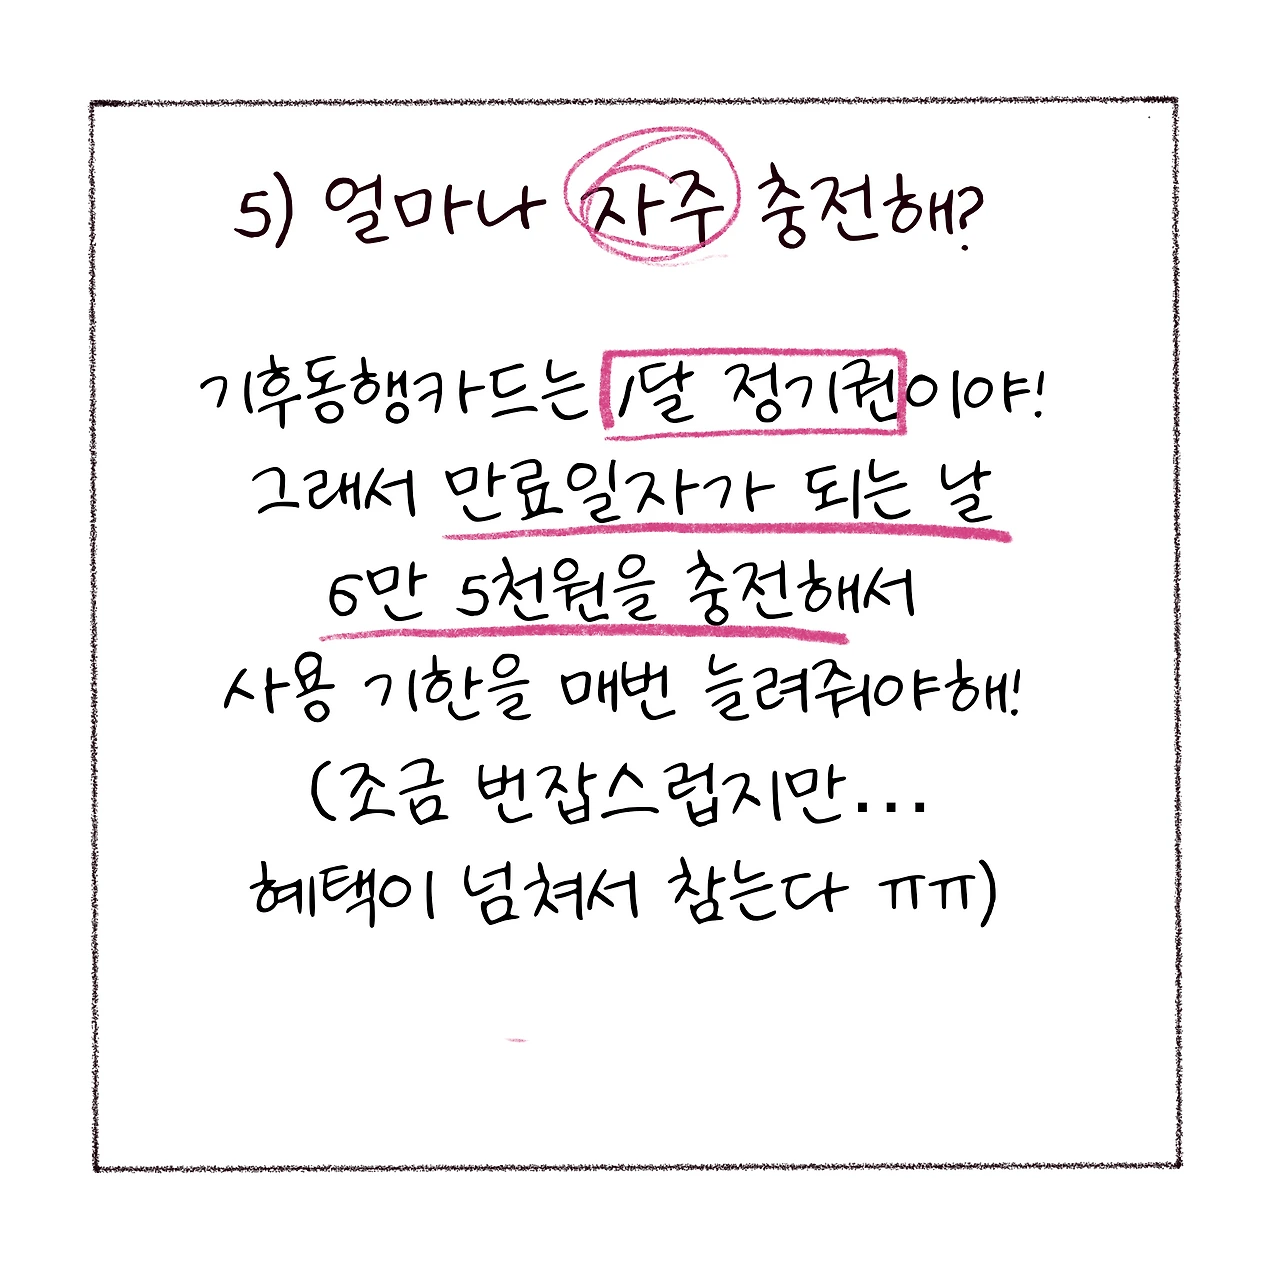 5) 얼마나 자주 충전해?
기후동행카드는 1달 정기권이야!
그래서 만료일자가 되는 날
6만 5천원을 충전해서
사용 기한을 매번 늘려줘야해!
(조금 번잡스럽지만...
혜택이 넘쳐서 참는다 ㅠㅠ)